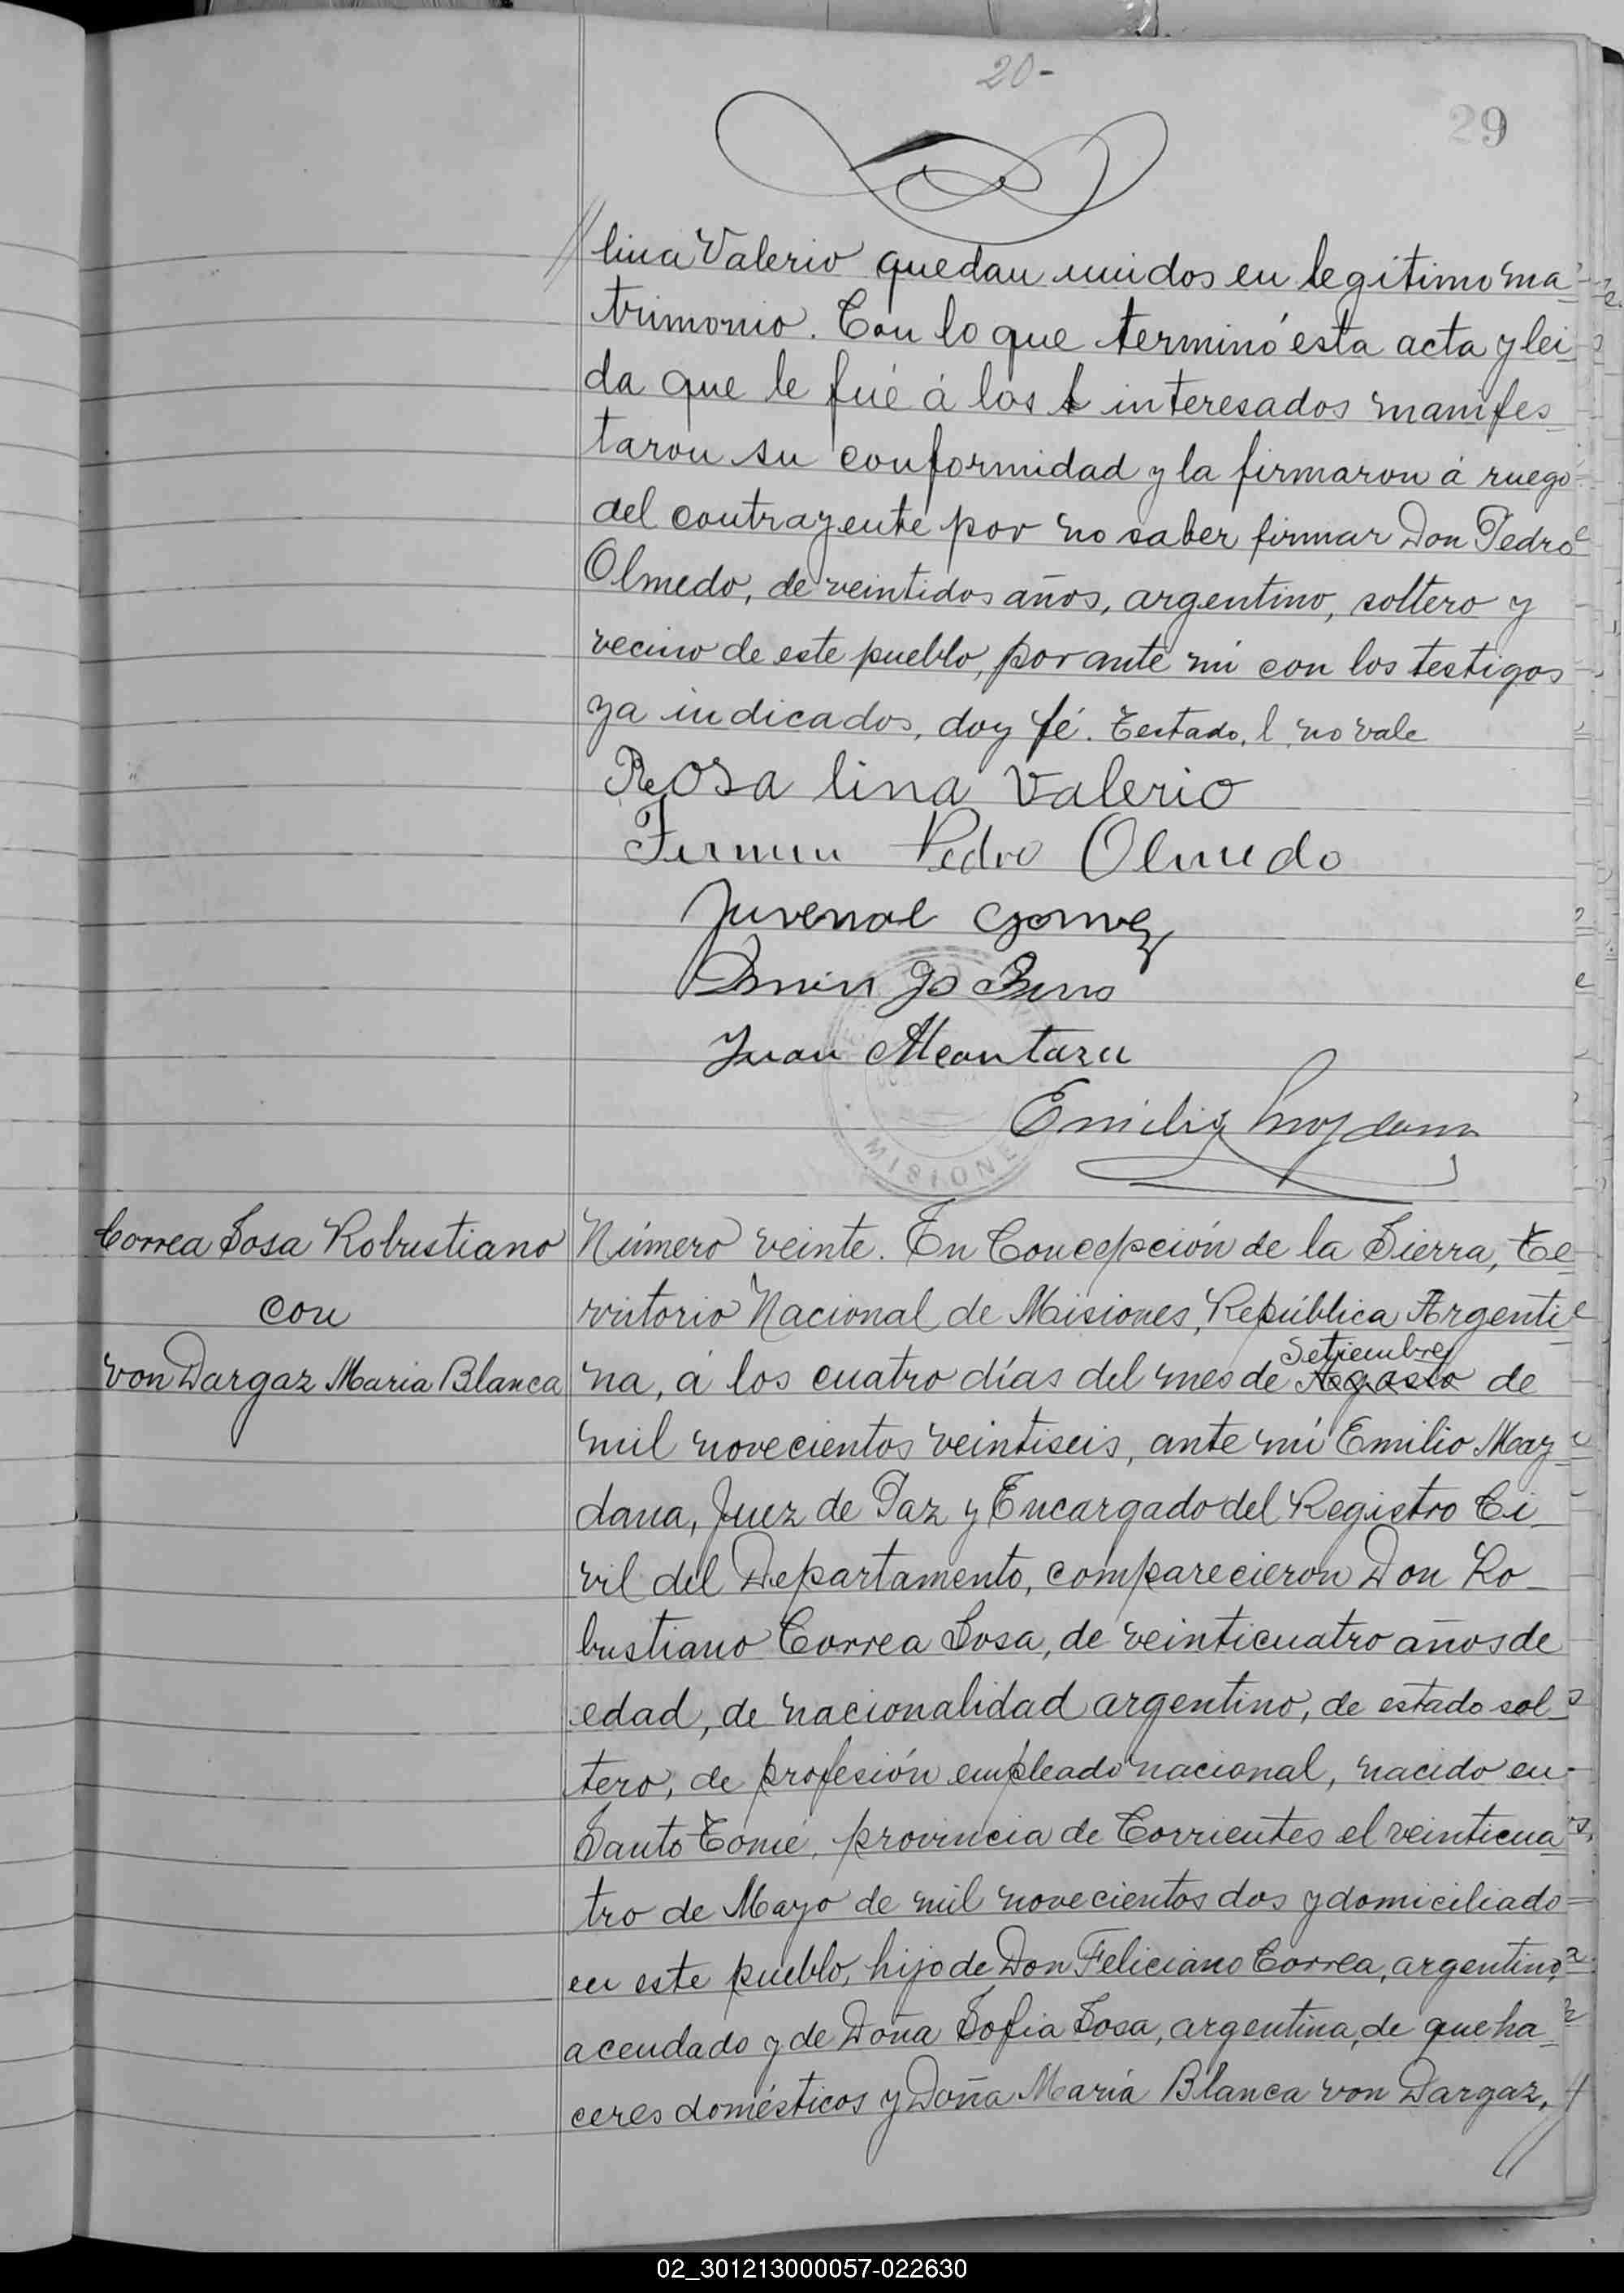 20-
29
// lina Valerio quedan unidos en legítimo ma
trimonio. Con lo que terminó esta acta y lei
da que le fué á los l interesados manifes
taron su conformidad y la firmaron á ruego
del contrayente por no saber firmar Don Pedro
Olmedo, de veintidos años, argentino, soltero y
vecino de este pueblo, por ante mi con los testigos
ya indicados, doy fé. Testado, l, no vale
Rosa lina Valerio
Fermin Pedro Olmedo
Juvenal Gomez
Juan Alcantara
Emilio Maydana
MISIONE
Correa Sosa Robustiano
con
von Dargaz Maria Blanca
Número veinte. En Concepción de la Sierra, Te
rritorio Nacional de Misiones, República Argenti
Setiembre
na, á los cuatro días del mes de Agosto de
mil novecientos veintiseis, ante mi Emilio May
dana, Juez de Paz y Encargado del Registro Ci
vil del Departamento, comparecieron Don Ro
bustiano Correa Sosa, de veinticuatro años de
edad, de nacionalidad argentino, de estado sol
tero, de profesión empleado nacional, nacido en
Santo Tomé, provincia de Corrientes el veinticua
tro de Mayo de mil novecientos dos y domiciliado
en este pueblo, hijo de Don Feliciano Correa, argentino,
acendado y de Doña Sofia Sosa, argentina, de queha
ceres domésticos y Doña María Blanca von Dargaz, //
02_301213000057-022630